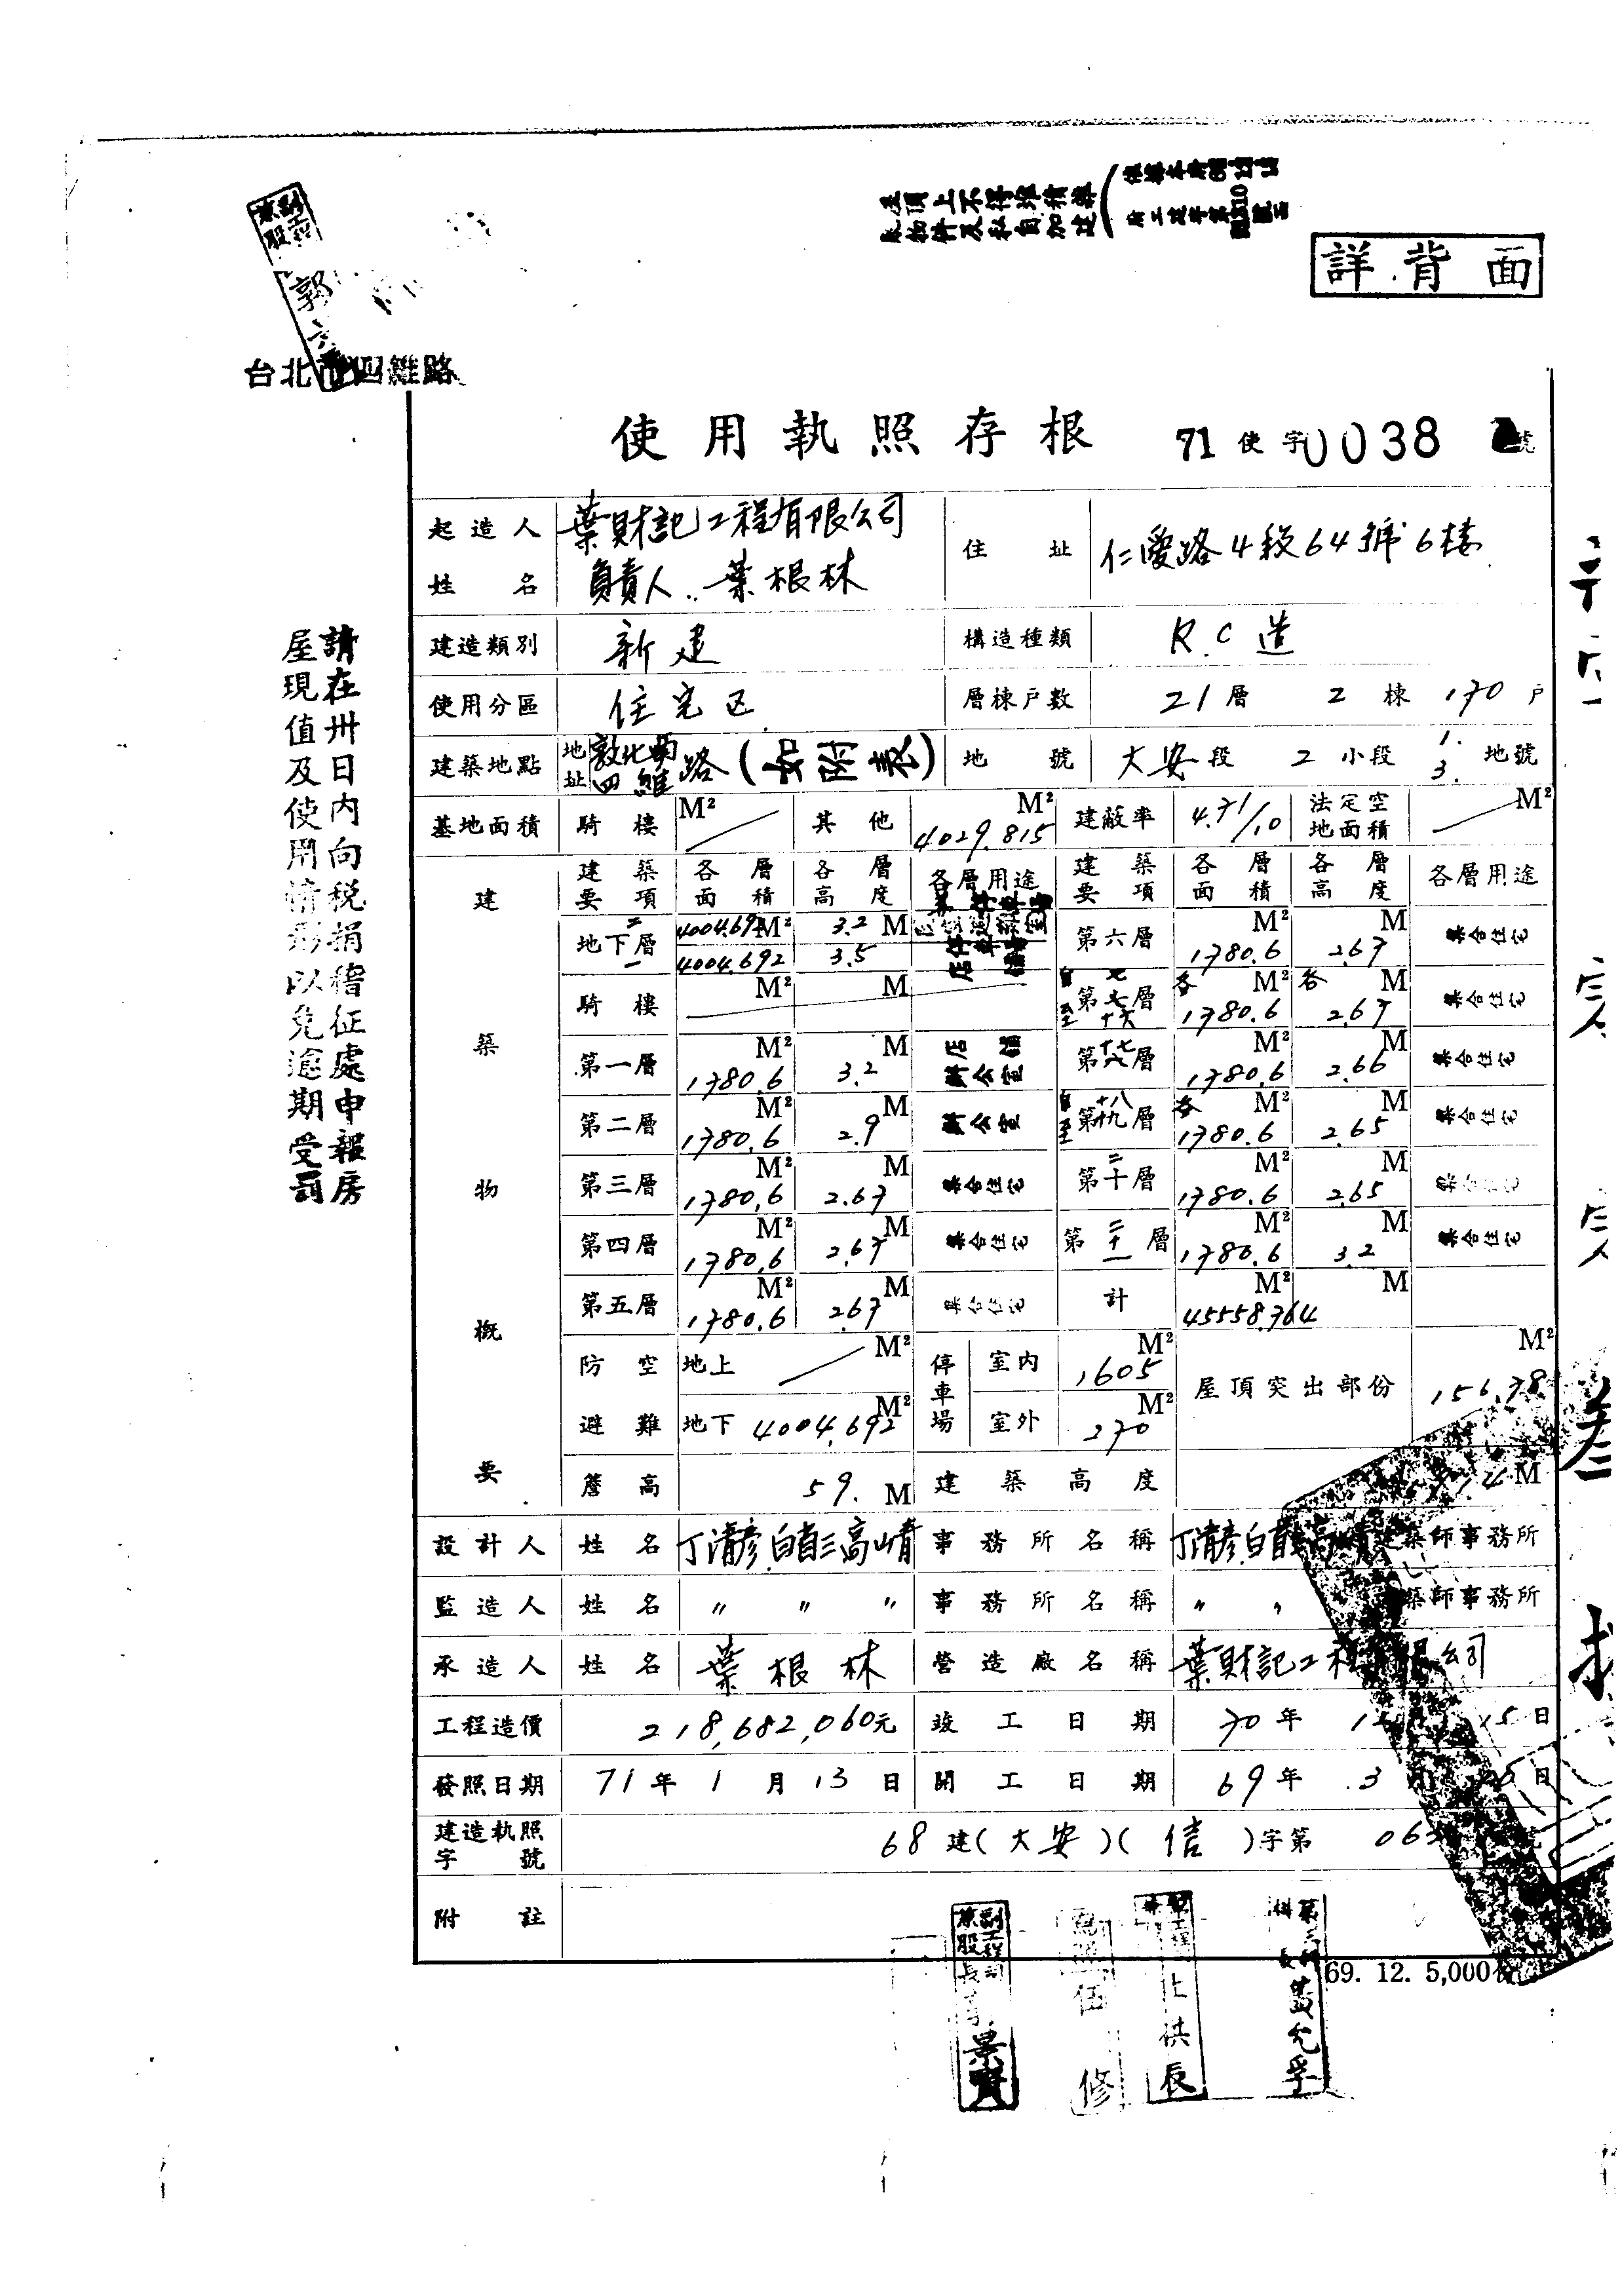 屋頂上不得堆積雜
物件及私自加建
詳背面
台北市四維路
使用執照存根 71使字0038 號
起造人姓名 葉財記工程有限公司 負責人..葉根林 住址 仁愛路4段64號6樓
建造類別 新建 構造種類 R.C造
使用分區 住宅区 層棟戶數 21層 2棟 170戶
建築地點 地址 敦化南四維路(如附表) 地號 大安段 2小段 1. 3. 地號
基地面積 騎樓 M² 其他 4029.815 M² 建蔽率 4.71/10 法定空地面積 M²
建築物概要
建築要項 各層面積 各層高度 各層用途 建築要項 各層面積 各層高度 各層用途
地下層 二 4004.692 M² 3.2 M 第六層 1780.6 M² 2.67 M 集合住宅
一 4004.692 3.5
騎樓 M² M 自七至十六 第七層 各1780.6 M² 各2.67 M 集合住宅
第一層 1780.6 M² 3.2 M 店舖 辦公室 第十七層 1780.6 M² 2.66 M 集合住宅
第二層 1780.6 M² 2.9 M 辦公室 自十八至第十九層 各1780.6 M² 2.65 M 集合住宅
第三層 1780.6 M² 2.67 M 集合住宅 第二十層 1780.6 M² 2.65 M 集合住宅
第四層 1780.6 M² 2.67 M 集合住宅 第二十一層 1780.6 M² 3.2 M 集合住宅
第五層 1780.6 M² 2.67 M 集合住宅 計 45558.764 M² M
防空避難 地上 M² 停車場 室內 1605 M² 屋頂突出部份 156.78 M²
地下 4004.692 M² 室外 270 M²
簷高 59. M 建築高度 M
設計人 姓名 丁清彥.白育彰高靖 事務所名稱 丁清彥.白 建築師事務所
監造人 姓名 〃 〃 〃 事務所名稱 〃 〃 築師事務所
承造人 姓名 葉根林 營造廠名稱 葉財記工程 限公司
工程造價 218,682,060元 竣工日期 70年 15日
發照日期 71年1月13日 開工日期 69年3月 日
建造執照字號 68建(大安)(信)字第 06 號
附註
69. 12. 5,000
請在卅日內向稅捐稽征處申報房
屋現值及使用情形以免逾期受罰